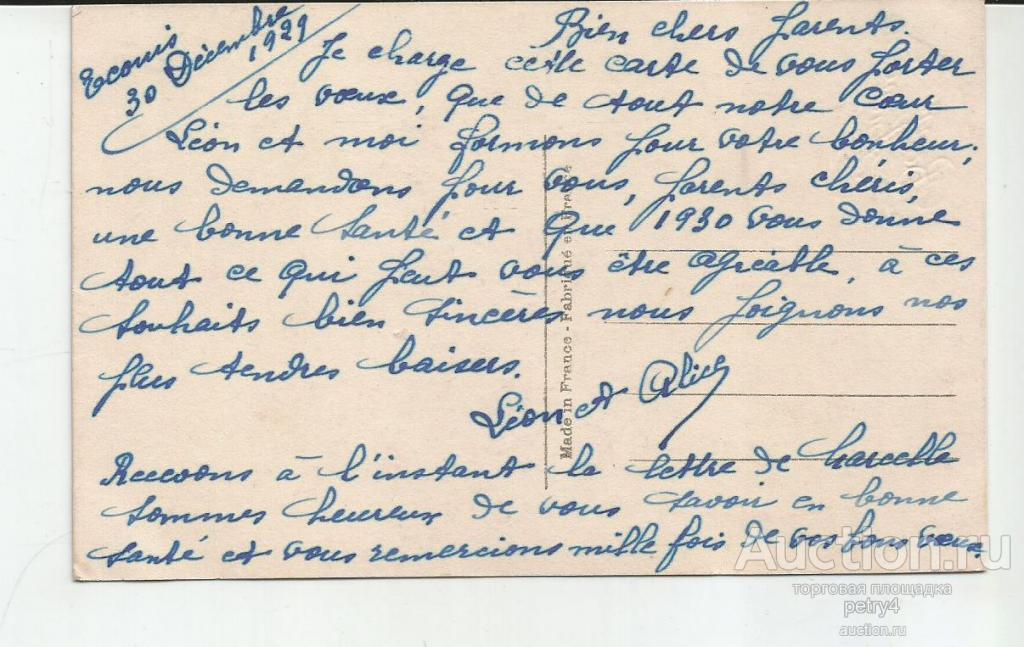 Ecouis
30 Décembre
1929
Bien chers Parents.
Je charge cette carte de vous porter
les vœux, que de tout notre cœur
Léon et moi formons pour votre bonheur,
nous demandons pour vous, parents chéris,
une bonne santé et que 1930 vous donne
tout ce qui peut vous être agréable, à ces
souhaits bien sincères nous joignons nos
plus tendres baisers.
Léon et Alice
Recevons à l'instant la lettre de Marcelle
sommes heureux de vous savoir en bonne
santé et vous remercions mille fois de vos bons vœux.
Made in France - Fabriqué en France
Auction.ru
торговая площадка
petry4
auction.ru